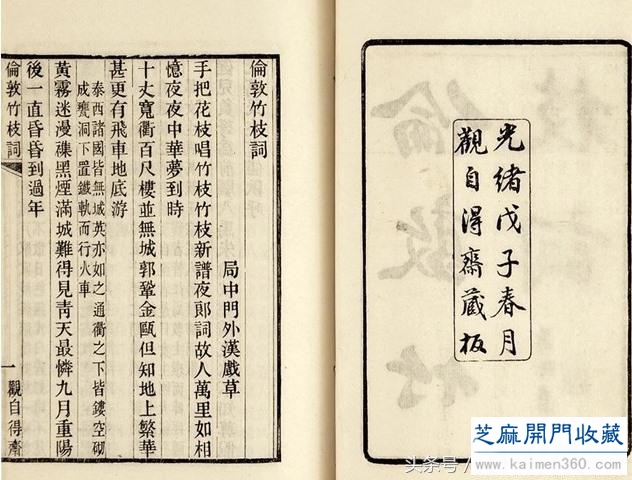 光緒戊子春月
觀自得齋藏板
倫敦竹枝詞
局中門外漢戲草
手把花枝唱竹枝竹枝新譜夜郎詞故人萬里如相
憶夜夜中華夢到時
十丈寬衢百尺樓並無城郭鞏金甌但知地上繁華
甚更有飛車地底游
泰西諸國皆無城英亦如之通衢之下皆鏤空砌
成甕洞下置鐵軌而行火車
黃霧迷漫襍黑煙滿城難得見靑天最憐九月重陽
後一直昏昏到過年
倫敦竹枝詞
一
觀自得齋
头条号/
芝麻開門收藏
www.kaimen360.com